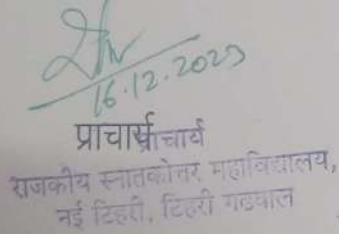 16.12.2023
प्राचार्य
प्राचार्य
राजकीय स्नातकोत्तर महाविद्यालय,
नई टिहरी, टिहरी गढवाल